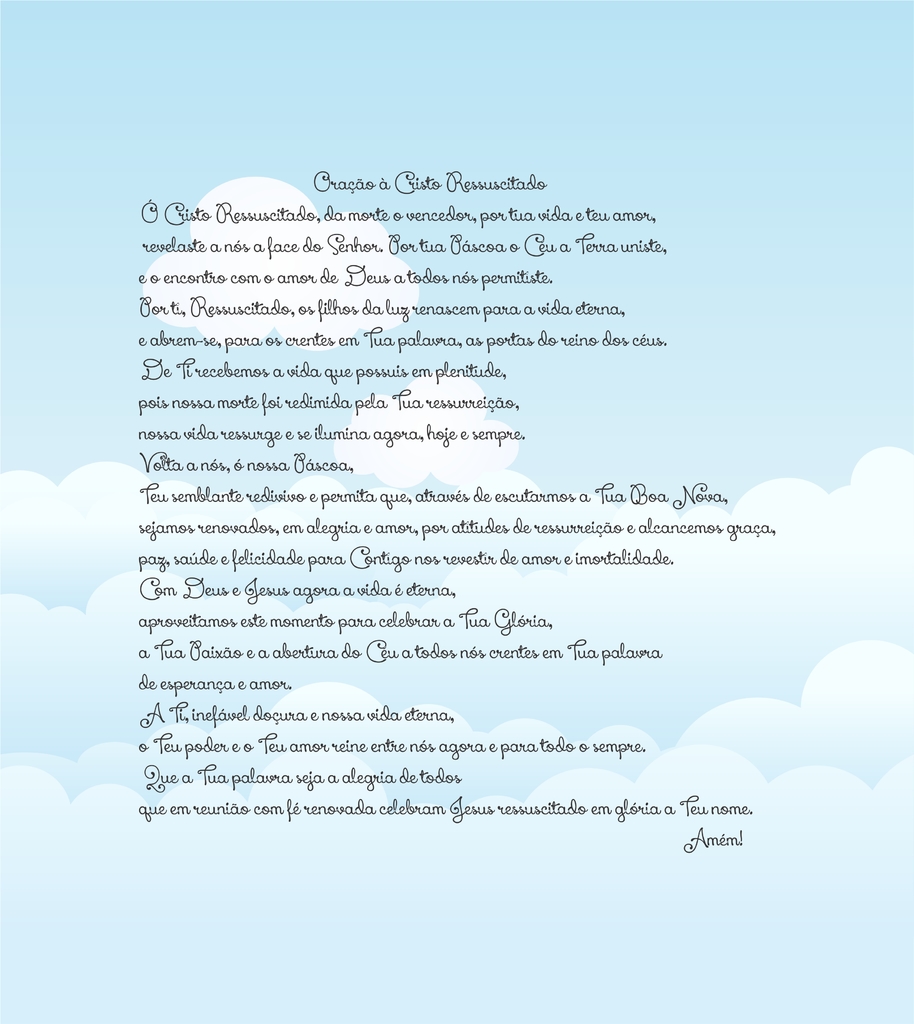 Oração à Cristo Ressuscitado
Ó Cristo Ressuscitado, da morte o vencedor, por tua vida e teu amor,
revelaste a nós a face do Senhor. Por tua Páscoa o Ceu a Terra uniste,
e o encontro com o amor de Deus a todos nós permitiste.
Por ti, Ressuscitado, os filhos da luz renascem para a vida eterna,
e abrem-se, para os crentes em Tua palavra, as portas do reino dos céus.
De Ti recebemos a vida que possuis em plenitude,
pois nossa morte foi redimida pela Tua ressurreição,
nossa vida ressurge e se ilumina agora, hoje e sempre.
Volta a nós, ó nossa Páscoa,
Teu semblante redivivo e permita que, através de escutarmos a Tua Boa Nova,
sejamos renovados, em alegria e amor, por atitudes de ressurreição e alcancemos graça,
paz, saúde e felicidade para Contigo nos revestir de amor e imortalidade.
Com Deus e Jesus agora a vida é eterna,
aproveitamos este momento para celebrar a Tua Glória,
a Tua Paixão e a abertura do Ceu a todos nós crentes em Tua palavra
de esperança e amor.
A Ti, inefável doçura e nossa vida eterna,
o Teu poder e o Teu amor reine entre nós agora e para todo o sempre.
Que a Tua palavra seja a alegria de todos
que em reunião com fé renovada celebram Jesus ressuscitado em glória a Teu nome.
Amém!